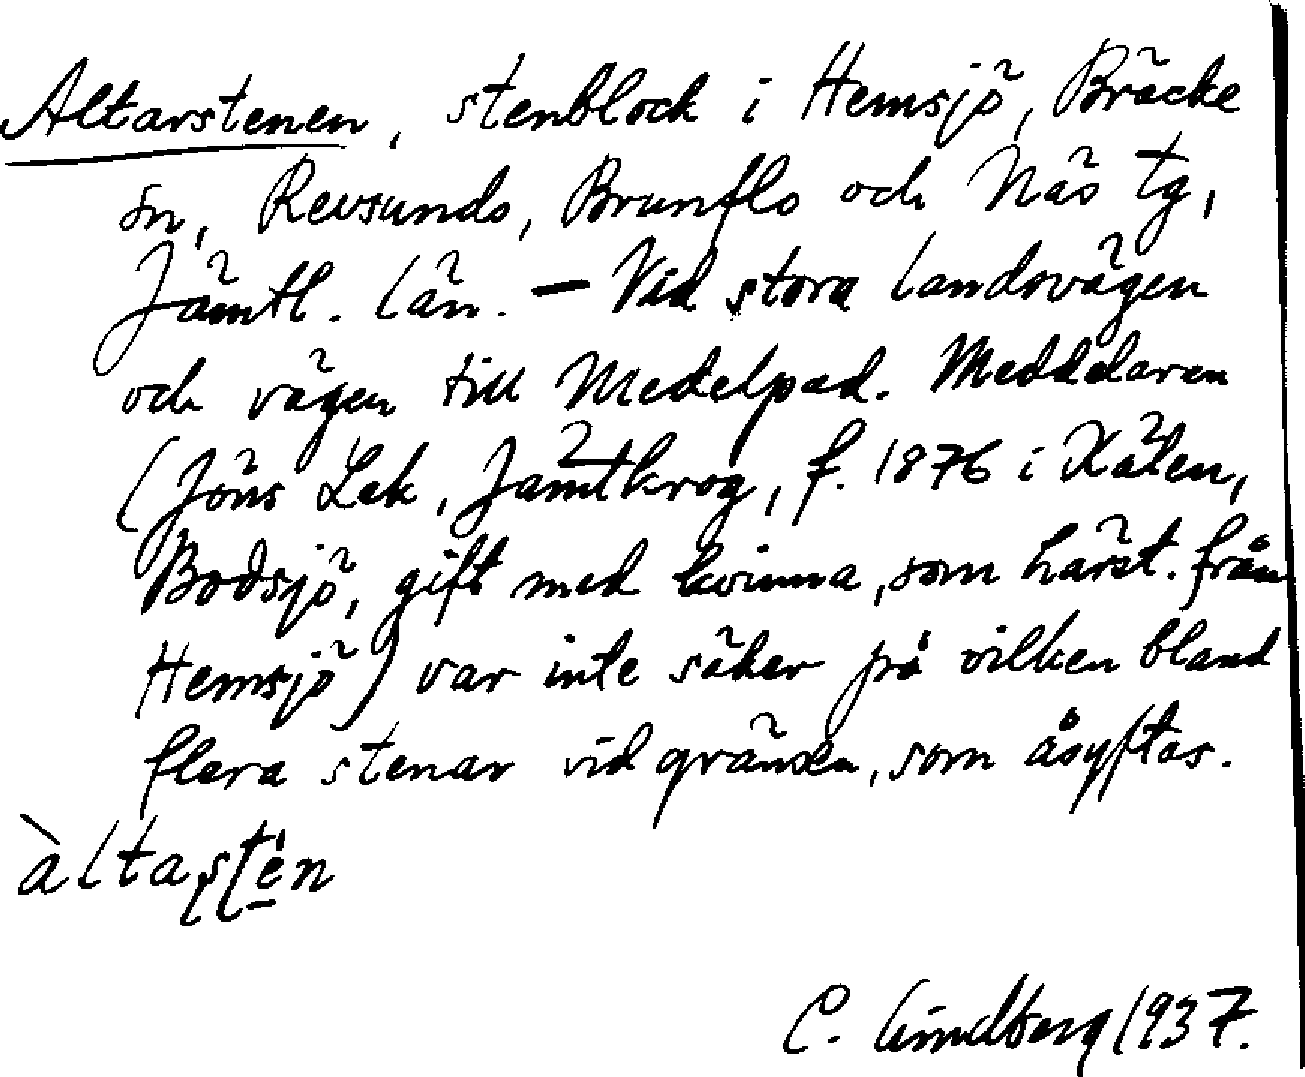 Altarstenen, stenblock i Hemsjö, Bräcke
sn, Revsunds, Brunflo och Näs tg,
Jämtl. län. — Vid stora landsvägen
och vägen till Medelpad. Meddelaren
(Jöns Lek, Jämtkrog, f. 1876 i Kälen,
Bodsjö, gift med kvinna, som härst. från
Hemsjö) var inte säker på vilken bland
flera stenar vid gränsen, som åsyftas.
àltasten
C. Lindberg 1937.